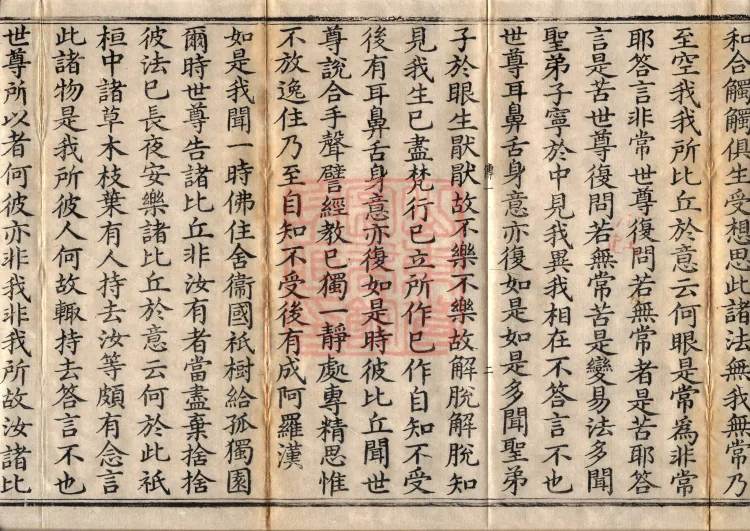 和合觸觸俱生受想思此諸法無我無常乃
至空我我所比丘於意云何眼是常為非常
耶答言非常世尊復問若無常者是苦耶答
言是苦世尊復問若無常苦是變易法多聞
聖弟子寧於中見我異我相在不答言不也
世尊耳鼻舌身意亦復如是如是多聞聖弟
子於眼生猒猒故不樂不樂故解脫解脫知
見我生已盡梵行已立所作已作自知不受
後有耳鼻舌身意亦復如是時彼比丘聞世
尊說合手聲譬經教已獨一靜處專精思惟
不放逸住乃至自知不受後有成阿羅漢
如是我聞一時佛住舍衞國祇樹給孤獨園
爾時世尊告諸比丘非汝有者當盡棄捨捨
彼法已長夜安樂諸比丘於意云何於此祇
桓中諸草木枝葉有人持去汝等頗有念言
此諸物是我所彼人何故輙持去答言不也
世尊所以者何彼亦非我非我所故汝諸比